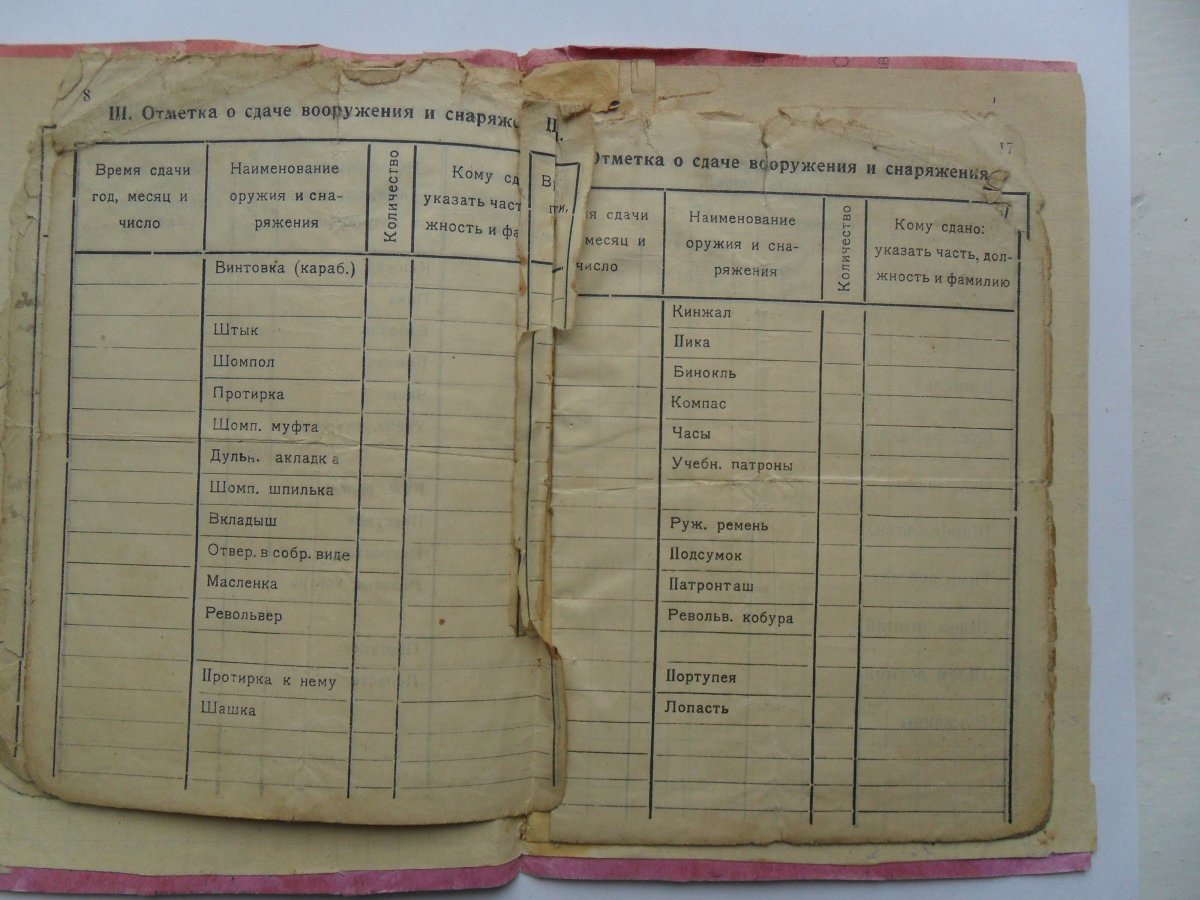 8
III. Отметка о сдаче вооружения и снаряже
Время сдачи
год, месяц и
число
Наименование
оружия и сна-
ряжения
Количество
Кому сд
указать част
жность и фа
Винтовка (караб.)
Штык
Шомпол
Протирка
Шомп. муфта
Дульн. акладка
Шомп. шпилька
Вкладыш
Отвер. в собр. виде
Масленка
Револьвер
Протирка к нему
Шашка
17
Отметка о сдаче вооружения и снаряжения
я сдачи
месяц и
число
Наименование
оружия и сна-
ряжения
Количество
Кому сдано:
указать часть, дол-
жность и фамилию
Кинжал
Пика
Бинокль
Компас
Часы
Учебн. патроны
Руж. ремень
Подсумок
Патронташ
Револьв. кобура
Портупея
Лопасть